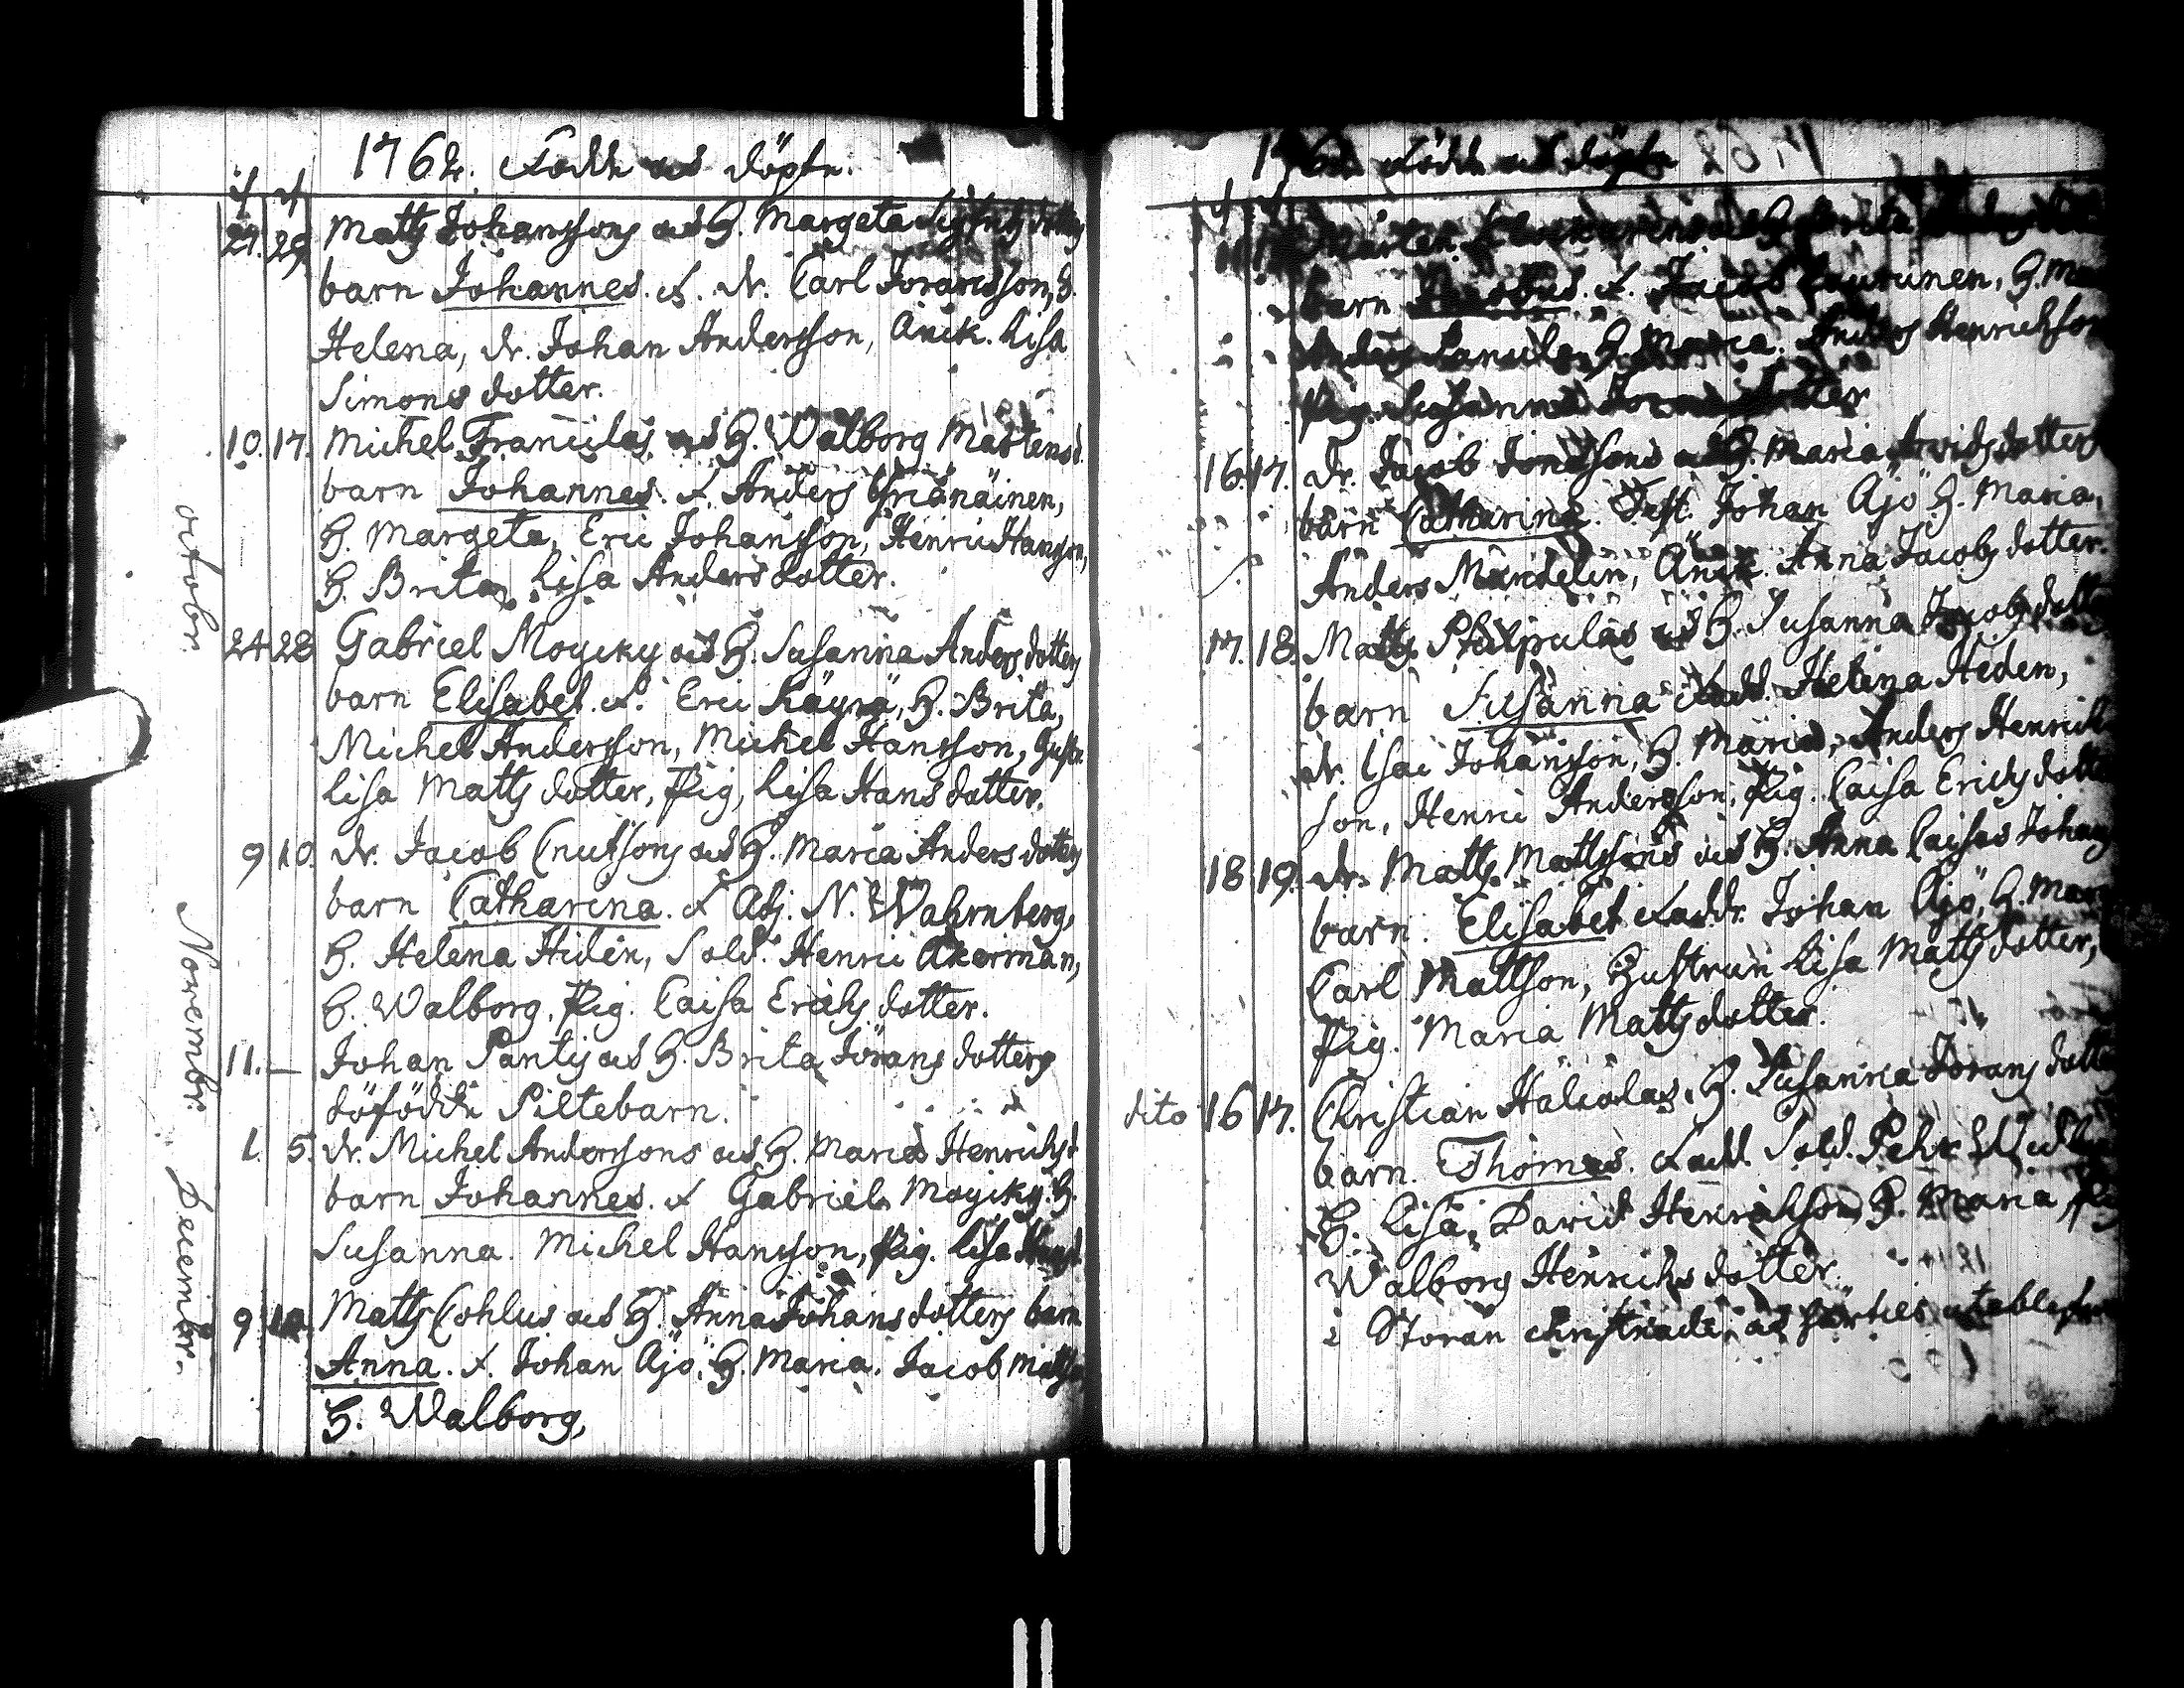 1762. Födde och döpte.
27. 29. Matts Johanssons och H. Margeta
barn Johannes. f. dr. Carl Joransson, H.
Helena, dr. Johan Andersson, Änck. Lisa
Simons dotter.
octobr.
10. 17. Michel Franulas och H. Walborg Mårtensd.
barn Johannes. f. Anders
H. Margeta, Eric Johansson, Henric Hansson,
H. Brita, Lisa Anders dotter.
24 28 Gabriel Moycky och H. Susanna Anders dotters
barn Elisabet. f. Eric Käyrä, H. Brita,
Michel Andersson, Michel Hansson, Hustr.
Lisa Matts dotter, Pig, Lisa Hans dotter.
Novembr.
9 10. dr. Jacob Cnutsons och H. Maria Anders dotters
barn Catharina. f. Adj. N. Wahrnberg,
H. Helena Hiden, Sold. Henric Åkerman,
H. Walborg, Pig. Caisa Erichs dotter.
11. — Johan Pantis och H. Brita Jörans dotters
döfödde Piltebarn.
Decembr.
1. 5. dr. Michel Anderssons och H. Maria Henrichsd.
barn Johannes. f. Gabriel Moycky. H.
Susanna. Michel Hansson, Pig. Lisa
9 10. Matts Cohlus och H. Anna Johansdotters barn
Anna. f. Johan Ajö. H. Maria. Jacob Matts
H. Walborg,
1762. Födde och döpte
11 Mårten och H. Brita
barn f. Jacob Laurinen, H. Ma
Anders H. Maria. Anders Henrichson
Pig. Susanna dotter
16. 17. dr. Jacob Jonssons och H. Maria Arvidsdotters
barn Catharina. Test. Johan Ajö H. Maria,
Anders Mandelin, Änck. Anna Jacobs dotter.
17. 18. Matts Philpulas och H. Susanna Jacobs dotte
barn Susanna Fadd. Helena Heden,
dr. Isac Johansson, H. Maria, Anders Henrich
son, Henric Andersson, Pig. Caisa Erichs dotte
18 19. dr. Matts Mattssons och H. Anna Caisas Johans
barn. Elisabet Faddr. Johan Ajö, H. Mar
Carl Mattson, Hustrun Lisa Matts dotter,
Pig. Maria Matts dotter.
dito 16 17. Christian Halcolas, H. Susanna Jorans dotte
barn. Thomas. Fadd. Sold. Pehr
H. Lisa, David Henrichson, H. Maria,
Walborg Henrichs dotter.
i Storån